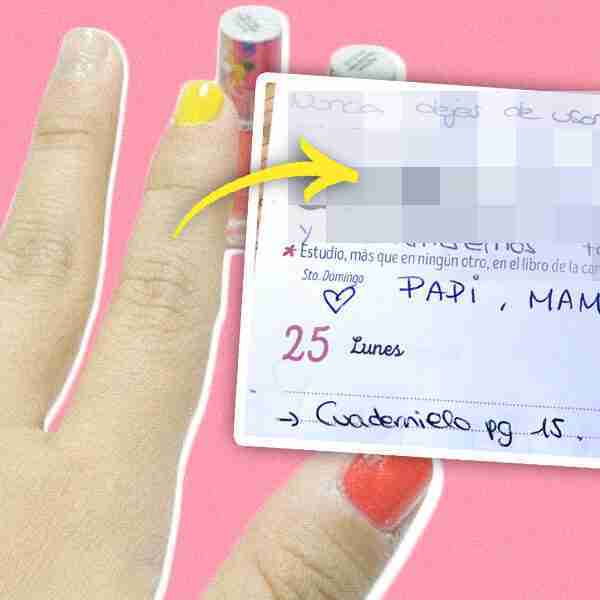 Nunca dejas de usar
y
Estudio, más que en ningún otro, en el libro de la
Sto. Domingo
PAPI, MAM
25 Lunes
→ Cuadernielo pg 15.